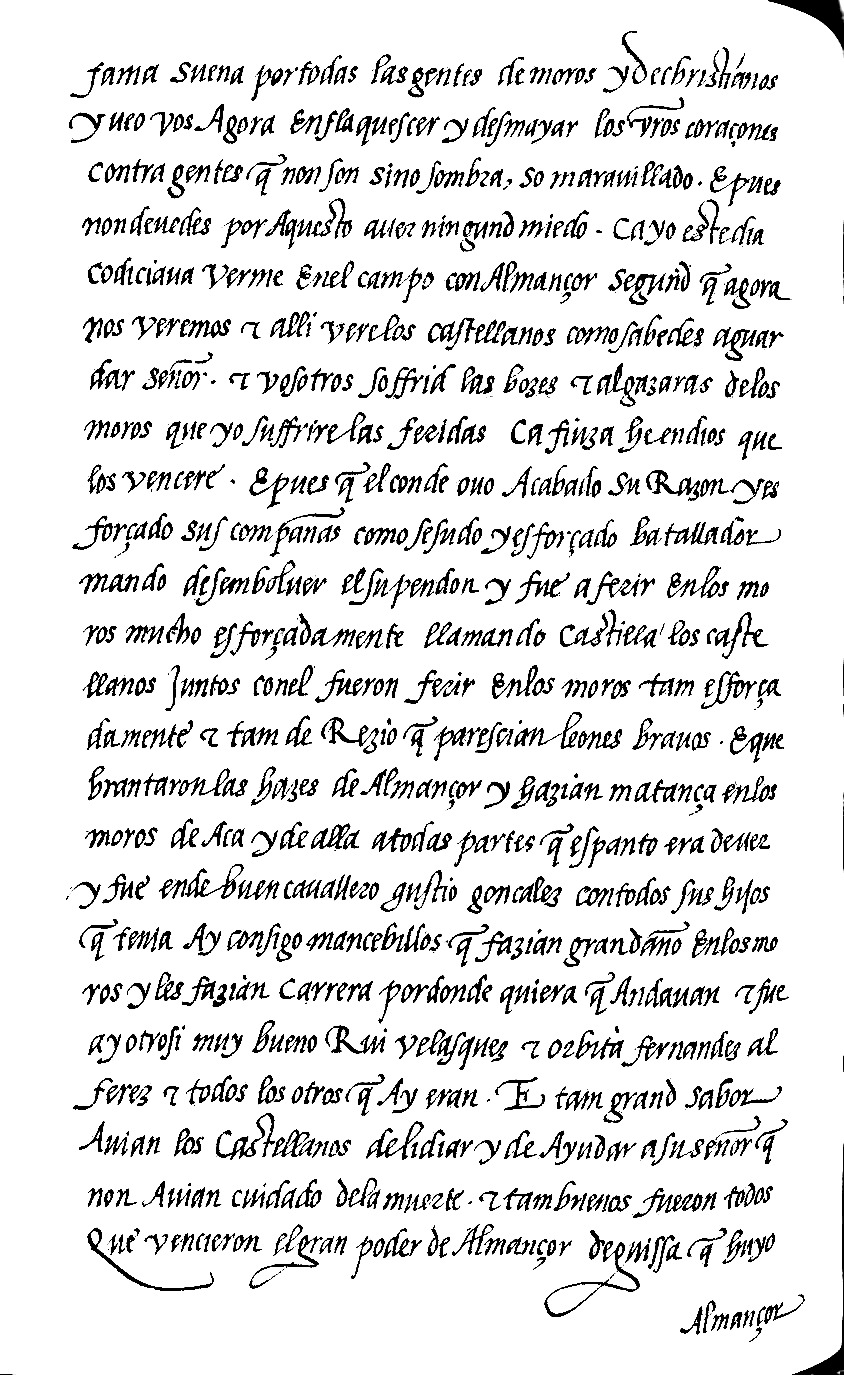 fama suena por todas las gentes de moros y de christianos
y ueo vos Agora Enflaquescer y desmayar los vros coraçones
contra gentes q̃ non son sino sombra, so marauillado. E pues
non deuedes por Aquesto auer ningund miedo - Ca yo este dia
codiciaua verme En el campo con Almançor segund q̃ agora
nos veremos ⁊ alli vere los castellanos como sabedes aguar
dar señor. ⁊ vosotros soffrid las bozes ⁊ algazaras de los
moros que yo suffrire las feridas Ca fiuza he en dios que
los vencere. E pues q̃ el conde ouo Acabado su Razon y es
forçado sus compañas como sesudo y esforçado batallador
mando desemboluer el su pendon y fue a ferir En los mo
ros mucho esforçadamente llamando Castilla los caste
llanos Juntos con el fueron ferir En los moros tam esforça
damente ⁊ tam de Rezio q̃ parescian leones brauos. E que
brantaron las hazes de Almançor y hazian matança en los
moros de Aca y de alla a todas partes q̃ espanto era de uer
y fue ende buen cauallero gustio goncalez con todos sus hijos
q̃ tenia Ay consigo mancebillos q̃ fazian gran daño En los mo
ros y les fazian Carrera por donde quiera q̃ Andauan ⁊ fue
ay otrosi muy bueno Rui velasquez ⁊ orbita fernandez al
ferez ⁊ todos los otros q̃ Ay eran. E tam grand sabor
Auian los Castellanos de lidiar y de Ayudar a su señor q̃
non Auian cuidado de la muerte. ⁊ tam buenos fueron todos
Que vencieron el gran poder de Almançor de guissa q̃ huyo
Almançor